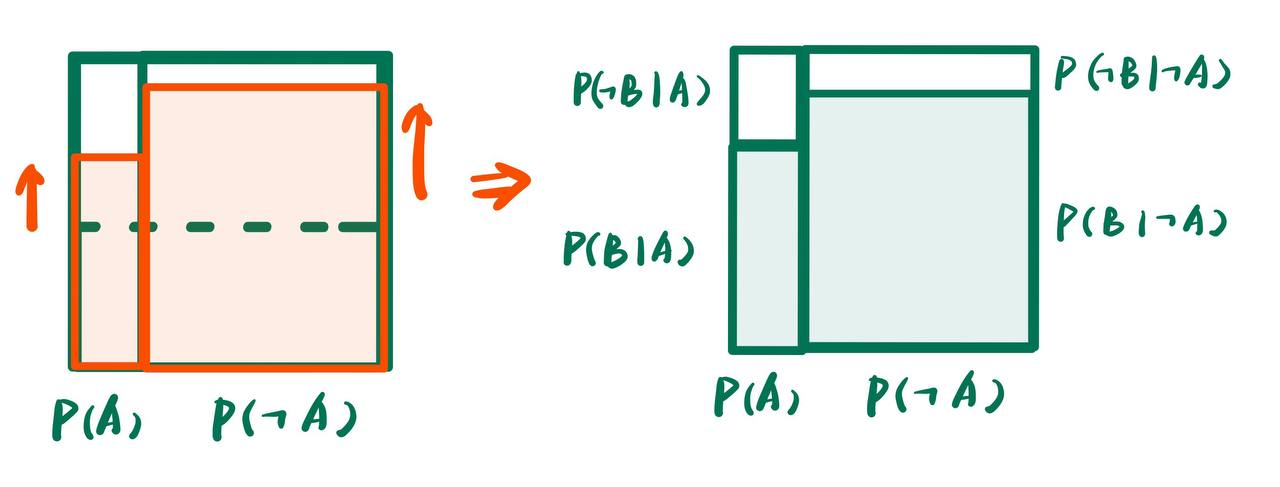 P(¬B|A)
P(¬B|¬A)
P(B|A)
P(B|¬A)
P(A) P(¬A)
P(A) P(¬A)